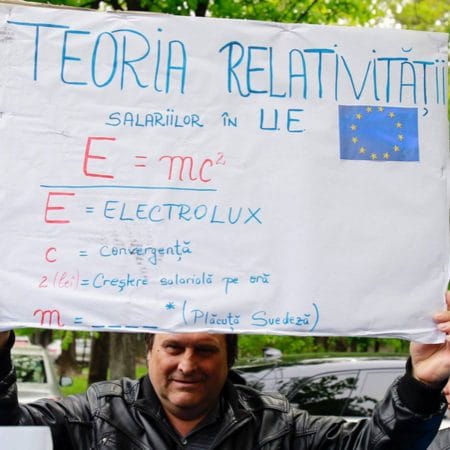 TEORIA RELATIVITĂȚII
SALARIILOR ÎN U.E.
E = mc²
E = ELECTROLUX
c = convergență
2 (lei) = Creștere salarială pe oră
m = _ _ _ _ * (Plăcuță Suedeză)